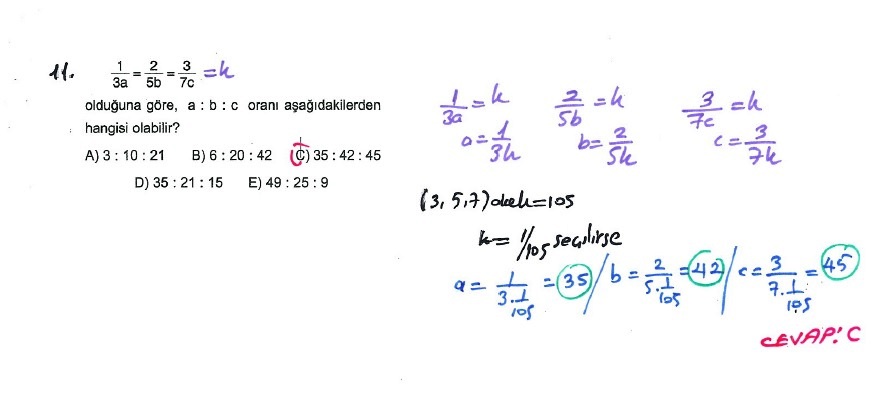 11. 1/3a = 2/5b = 3/7c = k
olduğuna göre, a : b : c oranı aşağıdakilerden
hangisi olabilir?
A) 3 : 10 : 21 B) 6 : 20 : 42 C) 35 : 42 : 45
D) 35 : 21 : 15 E) 49 : 25 : 9
1/3a = k 2/5b = k 3/7c = k
a = 1/3k b = 2/5k c = 3/7k
(3, 5, 7) okek = 105
k = 1/105 seçilirse
a = 1/(3·1/105) = 35 / b = 2/(5·1/105) = 42 / c = 3/(7·1/105) = 45
CEVAP: C